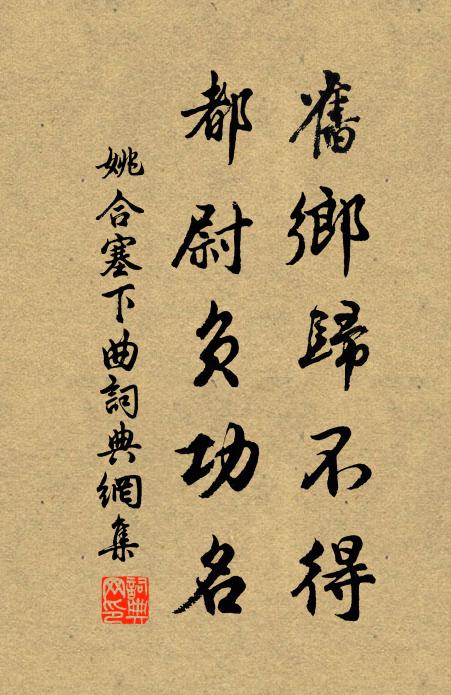 舊鄉歸不得
都尉負功名
姚合塞下曲詞典網集
詞典網印